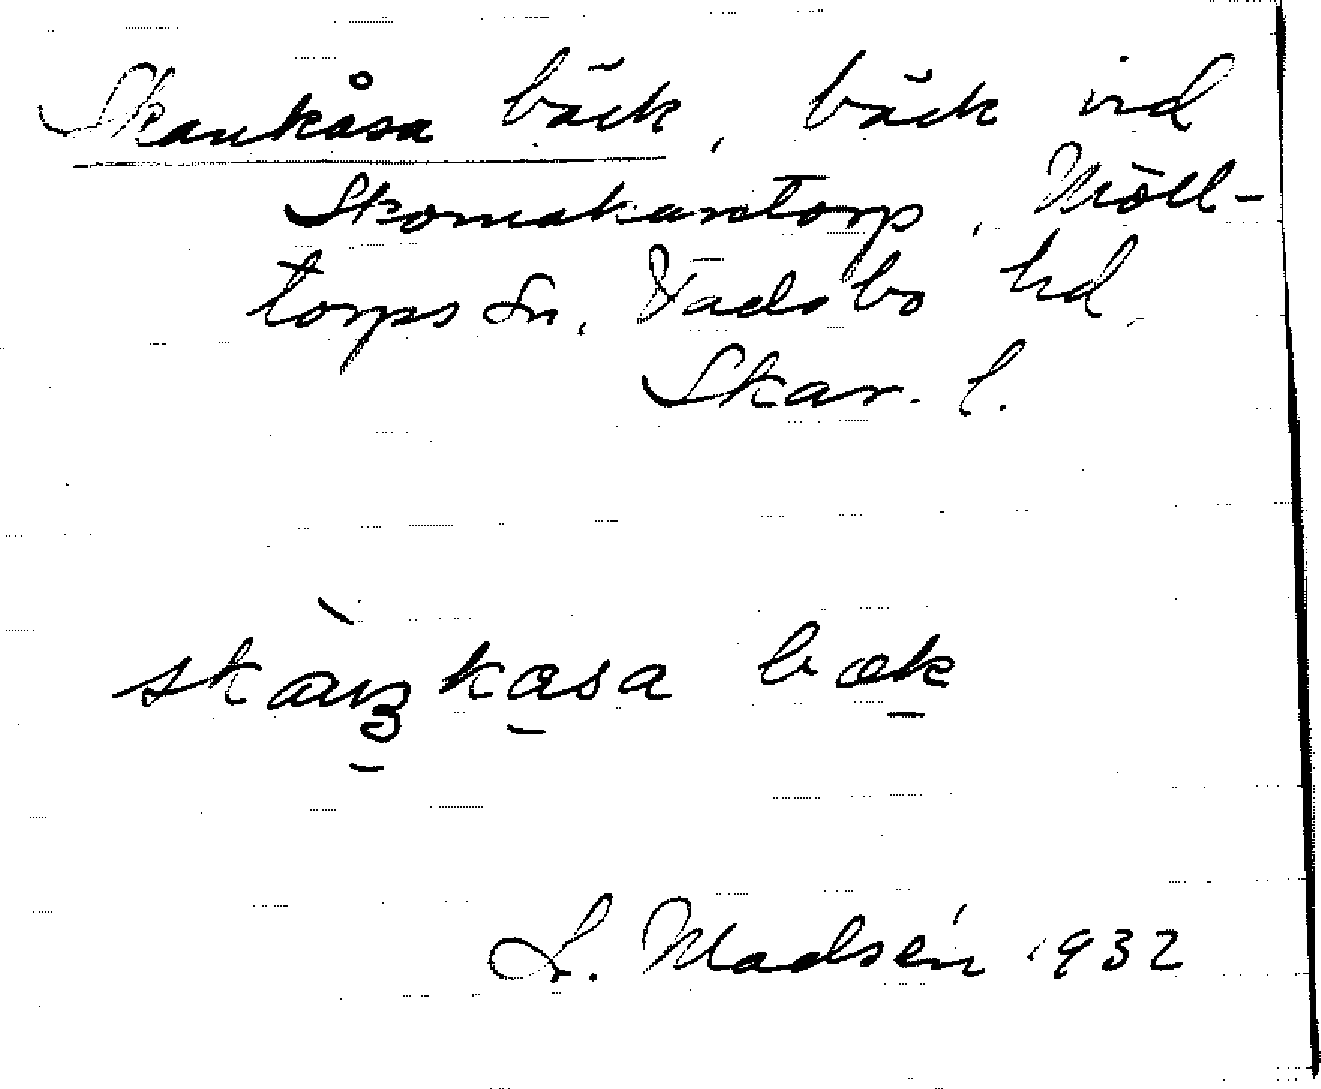 Skankåsa bäck, bäck vid
Skomakaretorp, Möll-
torps sn, Vadsbo hd,
Skar. l.
bæk
L. Madsén 1932